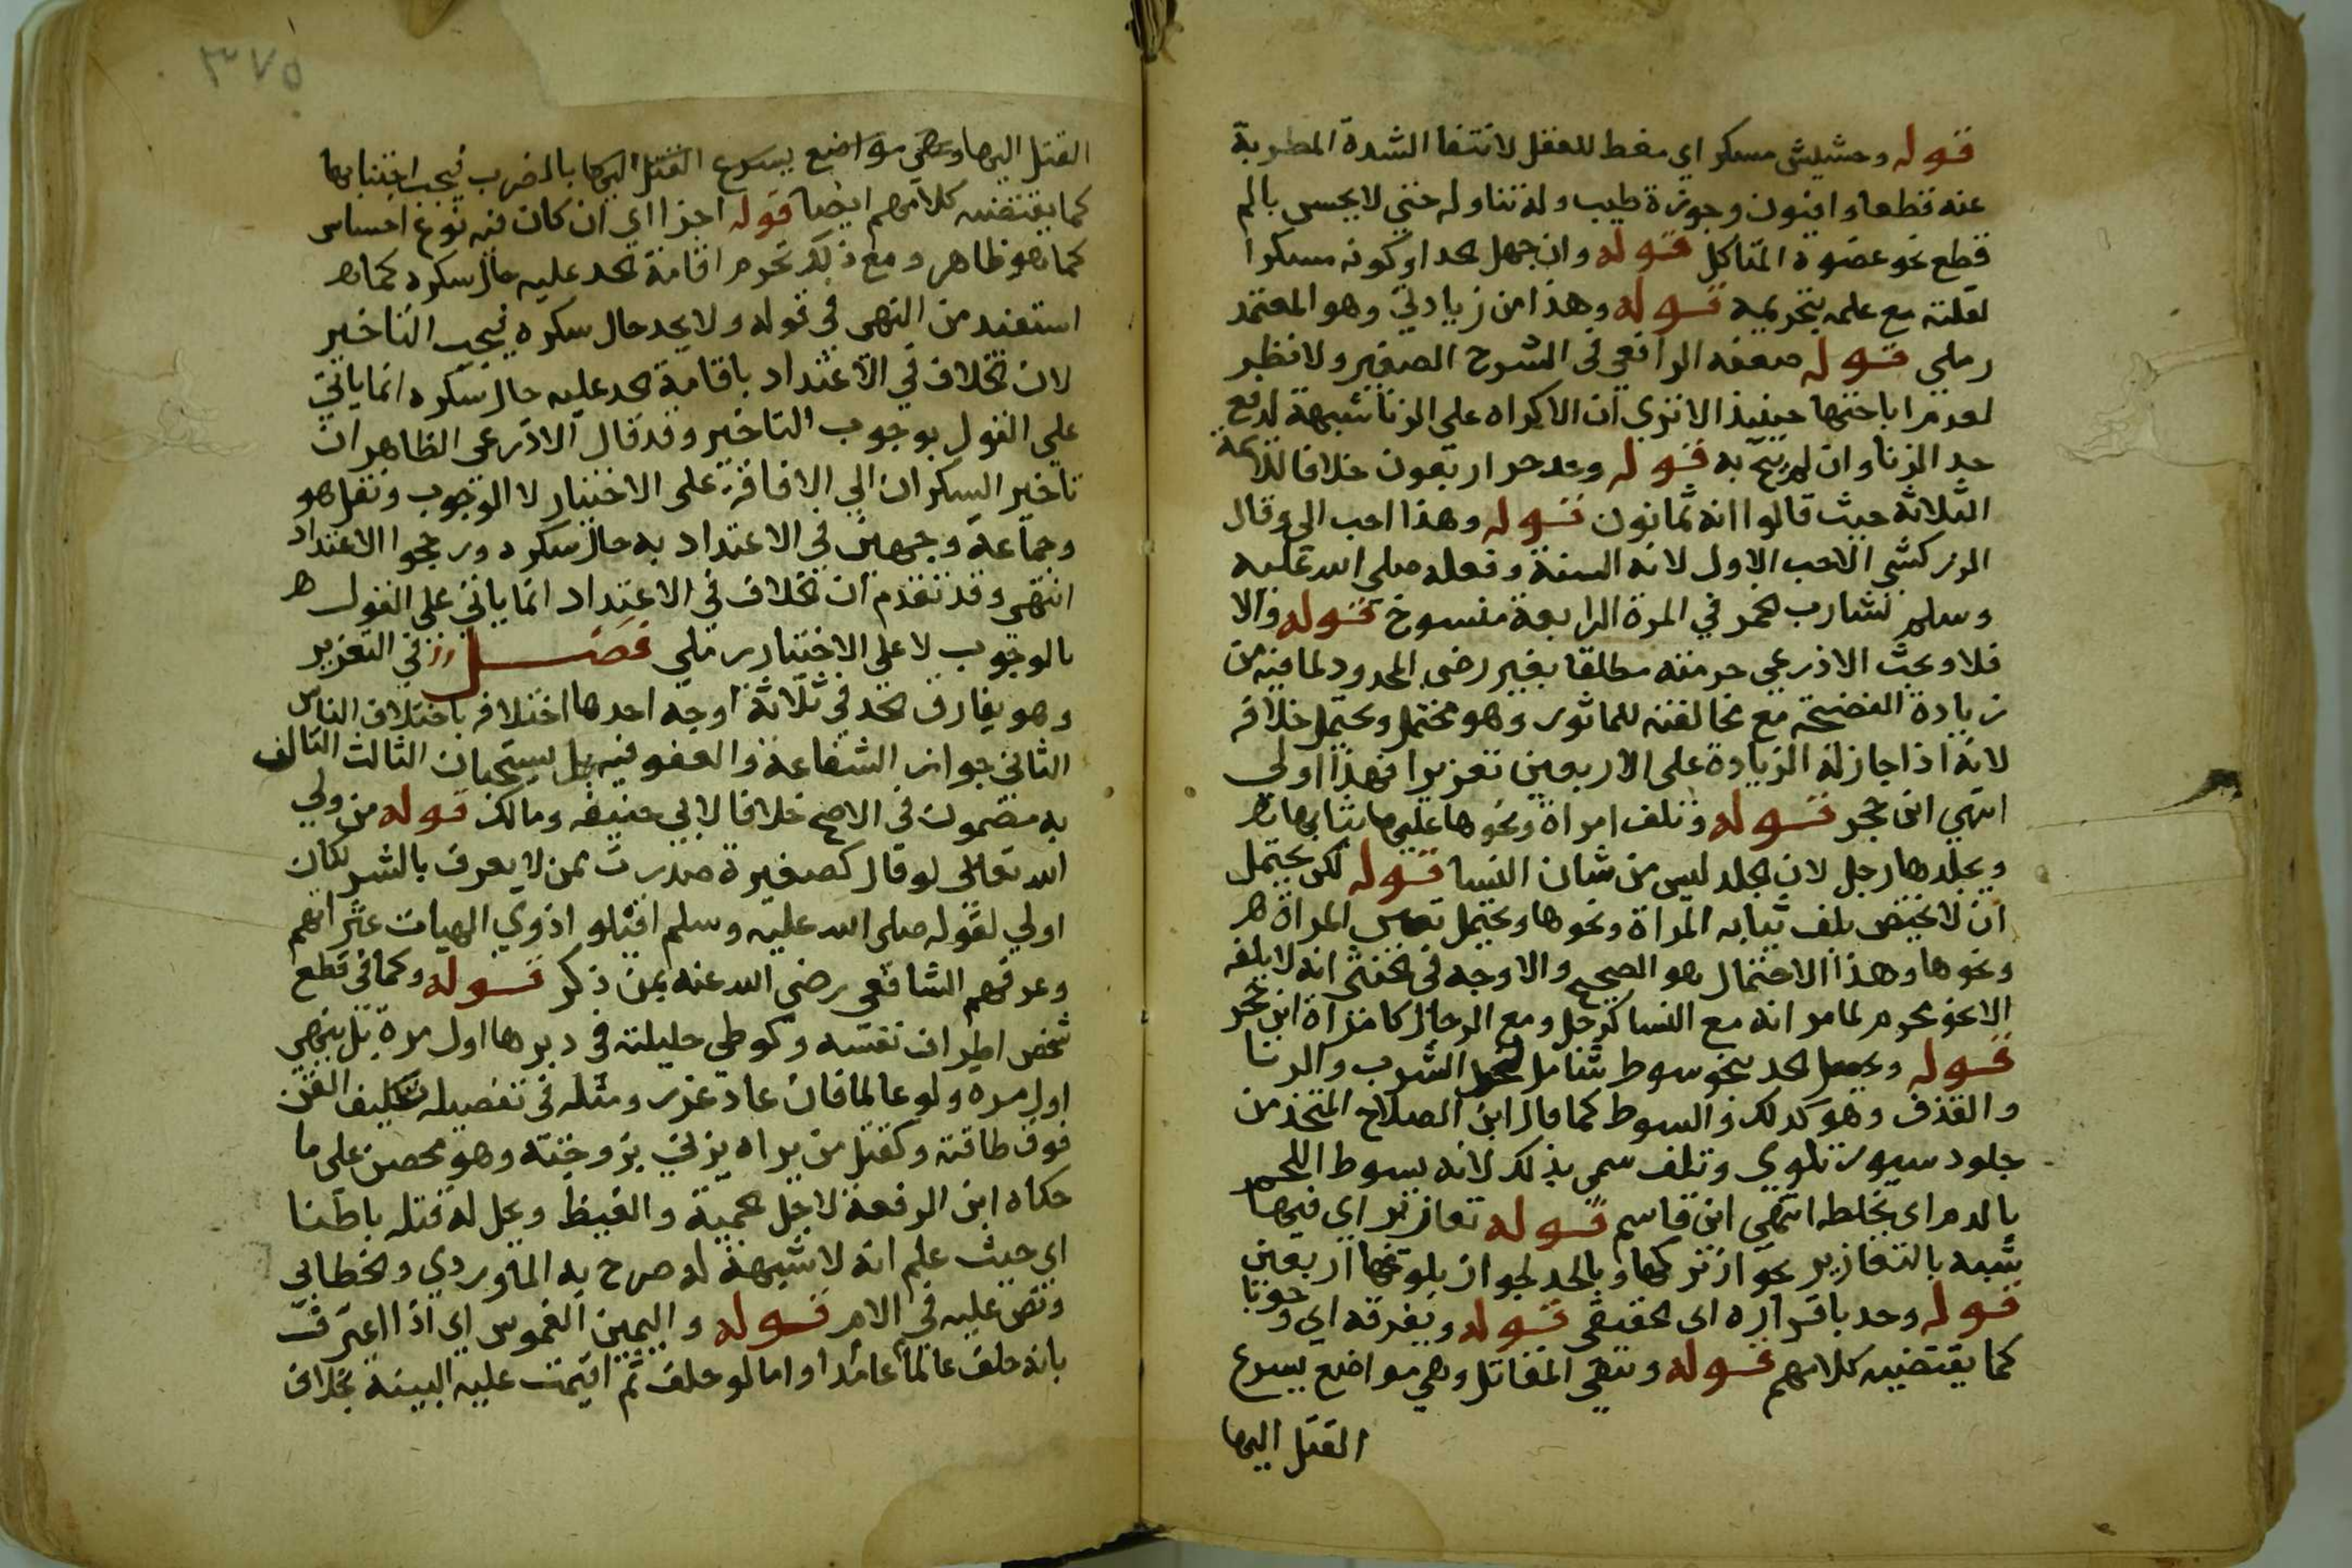 قوله وحشيش مسكر اي مغط للعقل لانتفا الشدة المطربة
عنه قطعا وافيون وجوزة طيب وله تناوله حتي لا يحس بالم
قطع نحو عضوه المتاكل قوله وان جهل الحد او كونه مسكرا
لقلته مع علمه بتحريمه قوله وهذا من زيادتي وهو المعتمد
رملي قوله صععه الرافعي في الشرح الصغير ولا نظر
لعدم اباحتها حينيذ الا تري ان الاكراه علي الزنا شبهة لدفع
حد الزنا وان لم يبح به قوله وحد حر اربعون خلافا للايمة
الثلاثة حيث قالوا انه ثمانون قوله وهذا احب الي وقال
الزركشي الاحب الاول لانه السنة وفعله صلي الله عليه
وسلم لشارب الخمر في المرة الرابعة منسوخ قوله والا
فلا وبحث الاذرعي حرمته مطلقا بغير رضي المحدود لما فيه من
زيادة الفضيحة مع مخالفته للماثور وهو محتمل ويحتمل خلافه
لانه اذا جاز له الزيادة علي الاربعين تعزيرا فهذا اولي
انتهي ابن حجر قوله وتلف امراة ونحوها عليها ثيابها
ويجلدها رجل لان الجلد ليس من شان النسا قوله لكن يحتمل
ان لا يختص بلف ثيابه المراة ونحوها ويحتمل المراة
ونحوها وهذا الاحتمال هو الصحيح والاوجه في الخنثي انه لا يلفه
الا نحو محرم لما مر انه مع النسا كرجل ومع الرجال كامراة ابن حجر
قوله الحد بنحو سوط شامل لنحو الشرب والزنا
والقذف وهو كذلك والسوط كما قال ابن الصلاح المتخذ من
جلود سيور تلوي وتلف سمي بذلك لانه يسوط اللحم
بالدم اي يخلطه انتهي ابن قاسم قوله تعازير اي فيها
شبه بالتعازير بجواز تركها وبالحد لجواز بلوغها اربعين
قوله وحد باقراره اي الحقيقي قوله ويفرقه اي وجوبا
كما يقتضيه كلامهم قوله وتتقي المقاتل وهي مواضع يسرع
القتل اليها
٣٧٥
القتل اليها وهي مواضع يسرع القتل اليها بالضرب فيجب اجتنابها
كما يقتضيه كلامهم ايضا قوله اجزا اي ان كان فيه نوع احساس
كما هو ظاهر ومع ذلك تحرم اقامة الحد عليه حال سكره كما
استفيد من النهي في قوله ولا يحد حال سكره فيجب التاخير
لان الخلاف في الاعتداد باقامة الحد عليه حال سكره انما ياتي
علي القول بوجوب التاخير وقد قال الاذرعي الظاهر ان
تاخير السكران الي الافاقة علي الاختيار لا الوجوب ونقل هو
وجماعة وجهين في الاعتداد به حال سكره ورجحوا الاعتداد
انتهي وقد تقدم ان الخلاف في الاعتداد انما ياتي علي القول
بالوجوب لا علي الاختيار رملي فصل في التعزير
وهو يفارق الحد في ثلاثة اوجه احدها اختلافه باختلاف الناس
الثاني جواز الشفاعة والعفو فيه بل يستحبان الثالث التالف
به مضمون في الاصح خلافا لابي حنيفه ومالك قوله من ولي
الله تعالي لو قال كصغيرة صدرت ممن لا يعرف بالشر لكان
اولي لقوله صلي الله عليه وسلم اقيلوا ذوي الهيات عثراتهم
وعرفهم الشافعي رضي الله عنه بمن ذكر قوله وكما في قطع
شخص اطراف نفسه وكوطي حليلته في دبرها اول مرة بل ينهي
اول مره ولو عالما فان عاد عزر ومثله في تفصيله تكليف القن
فوق طاقته وكقتل من يراه يزني بزوجته وهو محصن علي ما
حكاه ابن الرفعة لاجل الحمية والغيظ ويحل له قتله باطنا
اي حيث علم انه لا شبهة له صرح به الماوردي والخطابي
ونص عليه في الام قوله واليمين الغموس اي اذا اعترف
بانه حلف عالما عامدا واما لو حلف ثم اقيمت عليه البينة بخلاف